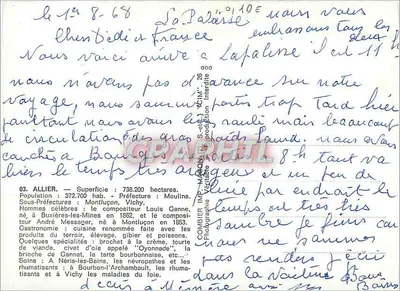 le 1er 8-68
La Palisse
nous vous
embrassons tous les
deux
Chers Dédé et France
Nous voici arrivé à Lapalisse il est 11 h
nous n'avons pas d'avance sur notre
voyage, nous sommes partis trop tard hier
pourtant nous avons bien roulé mais beaucoup
de circulation des gros poids lourd. nous avons
couchés à Bourges 8 h tout va
bien le temps très orageux et un peu de
pluie par endroit le
temps est très très
sombre je finirai car
nous ne sommes
pas rendus j'écris
dans la voiture Bons
Baisers
03. ALLIER. — Superficie : 738.200 hectares.
Population : 372.700 hab. - Préfecture : Moulins.
Sous-Préfectures : Montluçon, Vichy.
Hommes célèbres : le compositeur Louis Ganne,
né à Buxières-les-Mines en 1862, et le compositeur
André Messager, né à Montluçon en 1853.
Gastronomie : cuisine renommée faite avec les
produits du terroir, élevage, gibier et poissons.
Quelques spécialités : brochet à la crème, tourte
de viande, civet d'oie appelé "Oyonnade", la
brioche de Gannat, la tarte bourbonnaise, etc...
Soins : A Néris-les-Bains, les névropathes et les
rhumatisants ; à Bourbon-l'Archambault, les rhuma-
tisants et à Vichy les maladies du foie.
COMBIER IMP. MACON
"CIM"
CPARAMA.COM